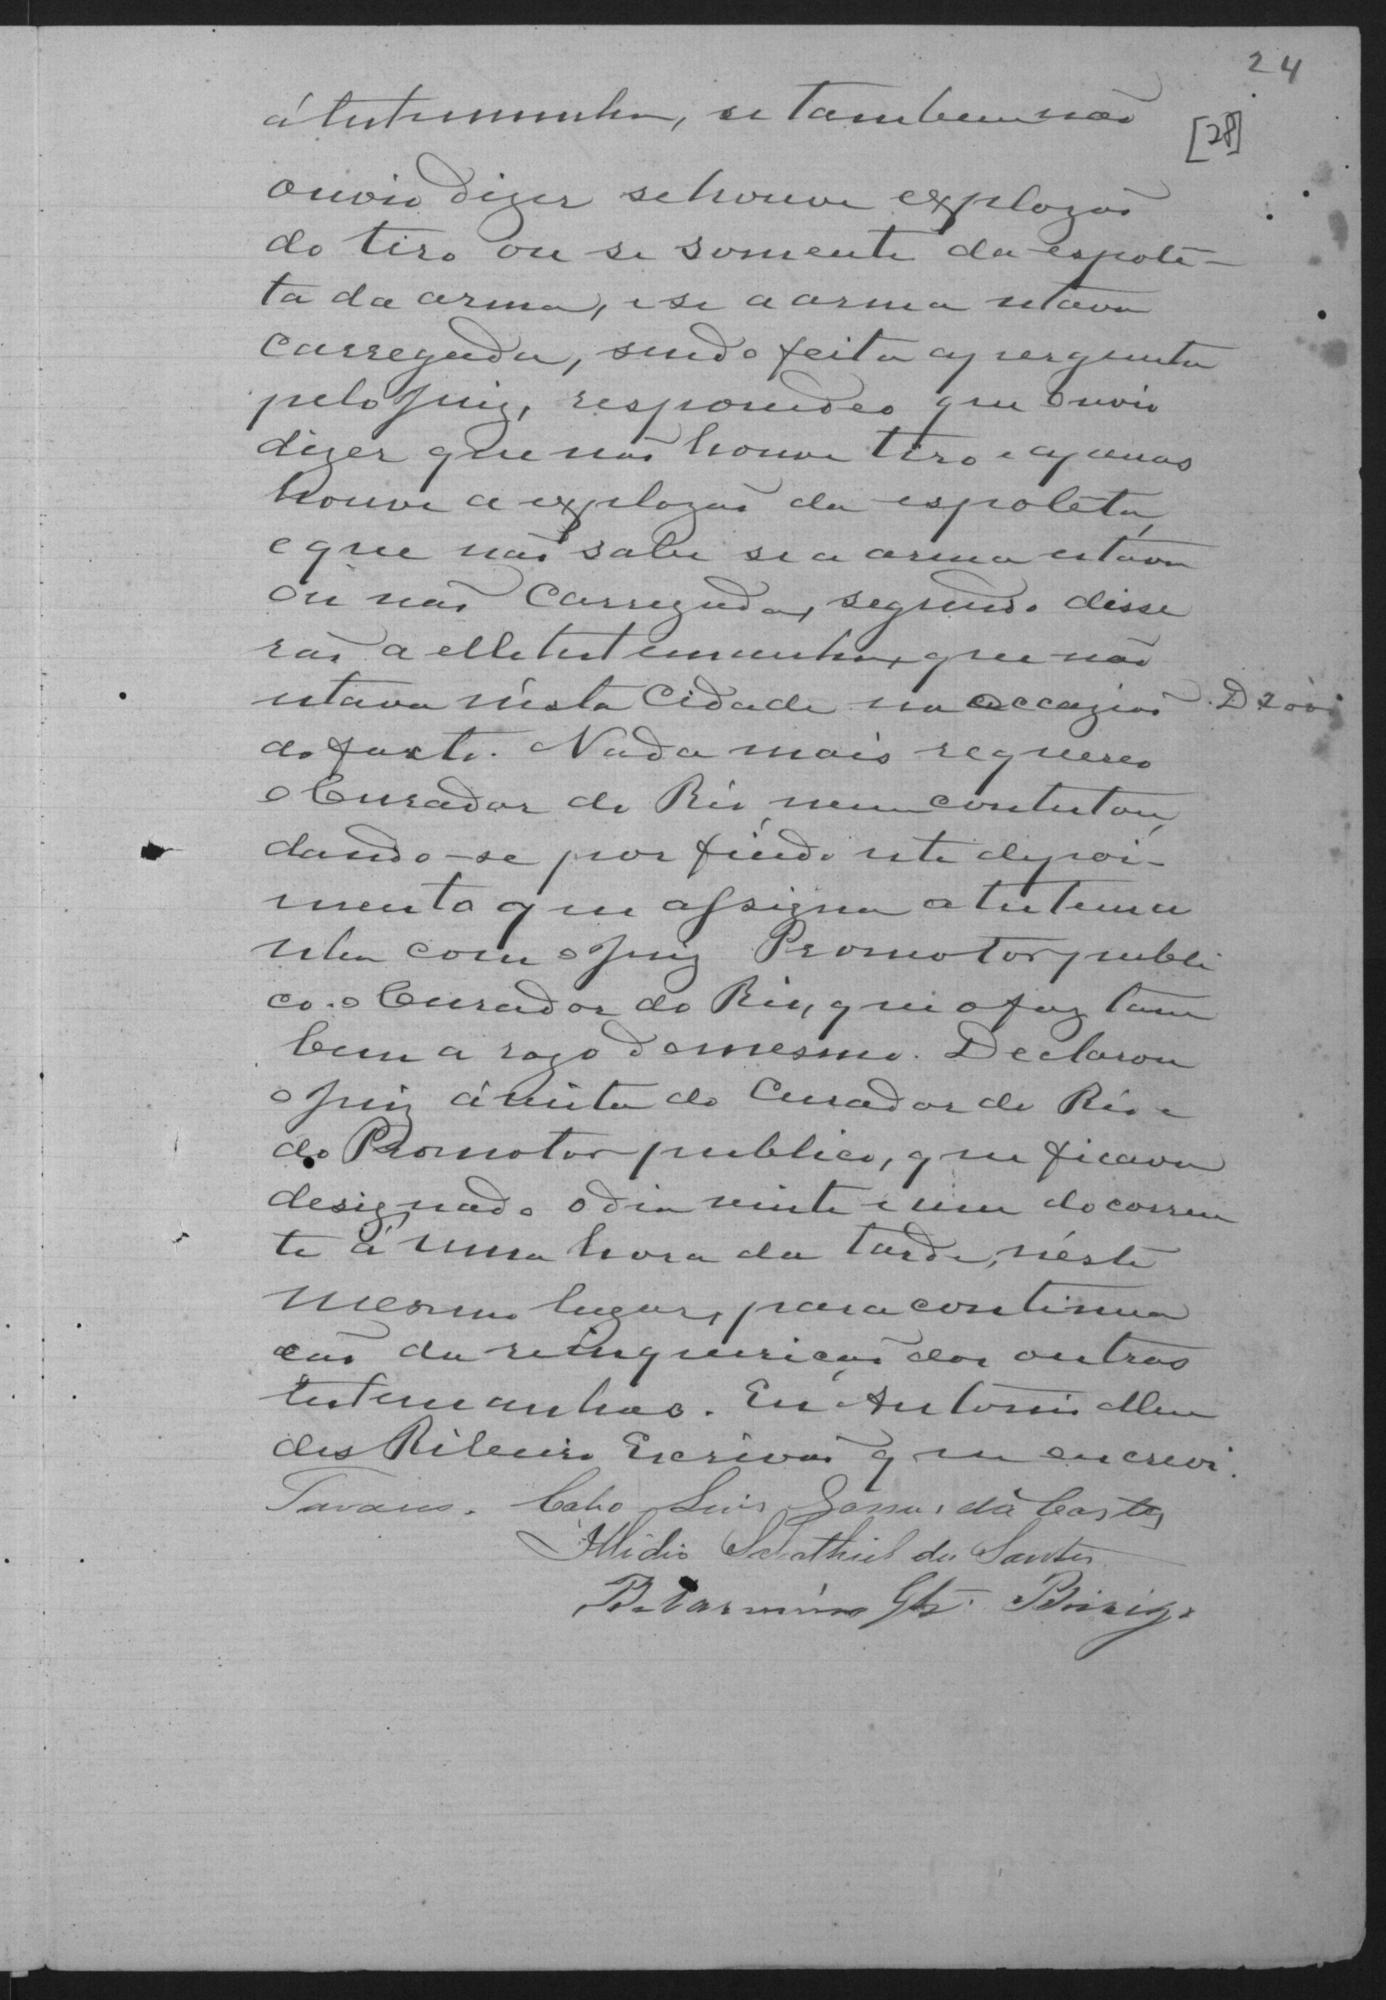 24
á testemunha, se tambem não
[28]
ouvio dizer se houve explozão
do tiro ou se somente da espole-
ta da arma, e se a arma estava
carregada, sendo feita a pergunta
pelo Juiz, respondeo que ouvio
dizer que não houve tiro e apenas
houve a explozão da espoleta,
e que não sabe se a arma estava
ou não carregada, segundo disse
rão a elle testemunha, que não
estava nésta Cidade na occazião
do facto. Nada mais requereo
o Curador do Réo, nem contestou,
dando-se por findo este depoi-
mento que assigna a testemu
nha com o Juiz Promotor publi
co o Curador do Réo, que o faz tam
bem a rogo do mesmo. Declarou
o Juiz á vista do Curador do Réo e
do Promotor publico, que ficava
designado o dia vinte e um do corren
te á uma hora da tarde, néste
mesmo lugar, para continua
cão da reinquericão das outras
testemunhas. Eu Antonio Men
des Ribeiro Escrivão que escrevi.
Tavares. Cabo Luis Gomes da Costa
Illidio Salathiel dos Santos